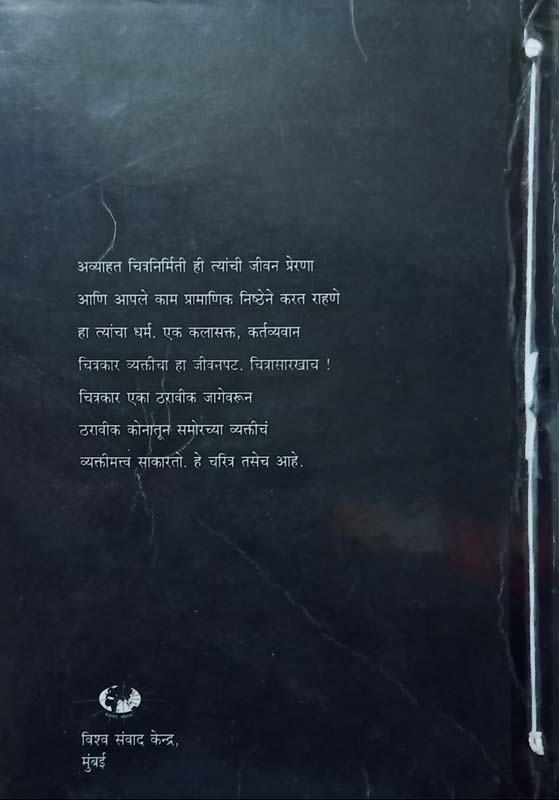 अव्याहत चित्रनिर्मिती ही त्यांची जीवन प्रेरणा
आणि आपले काम प्रामाणिक निष्ठेने करत राहणे
हा त्यांचा धर्म. एक कलासक्त, कर्तव्यवान
चित्रकार व्यक्तीचा हा जीवनपट. चित्रासारखाच !
चित्रकार एका ठरावीक जागेवरून
ठरावीक कोनातून समोरच्या व्यक्तीचं
व्यक्तीमत्त्वं साकारतो. हे चरित्र तसेच आहे.
विश्व संवाद केन्द्र,
मुंबई